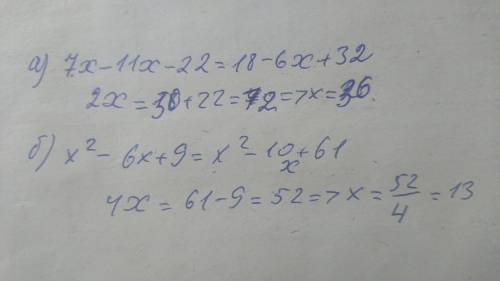 а) 7x-11x-22=18-6x+32
2x=50+22=72=>x=36.
б) x²-6x+9=x²-10x+61
4x=61-9=52=>x=52/4=13